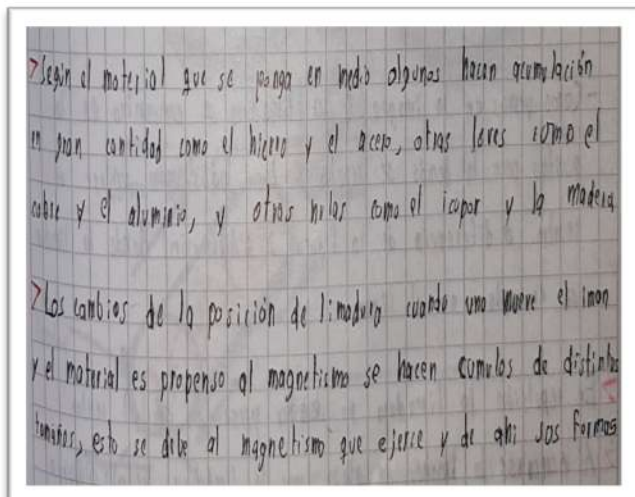 >Según el material que se ponga en medio algunos hacen acumulación
en gran cantidad como el hierro y el acero, otras leves como el
cobre y el aluminio, y otras nulas como el icopor y la madera
>Los cambios de la posición de limadura cuando uno mueve el iman
y el material es propenso al magnetismo se hacen cumulos de distintos
tamaños, esto se debe al magnetismo que ejerce y de ahi sus formas